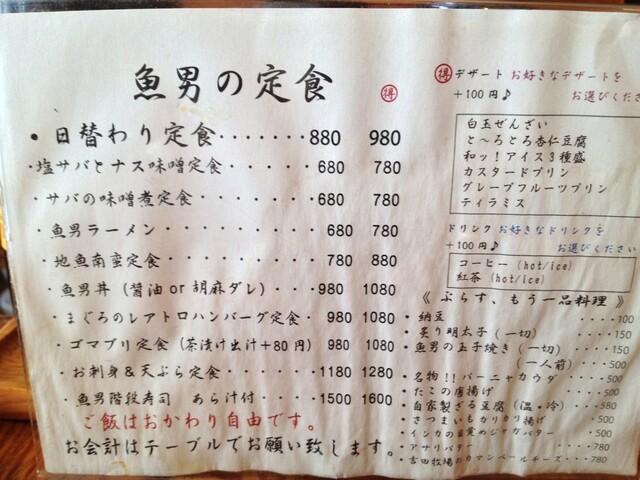 魚男の定食 得
・日替わり定食・・・・・・・880 980
・塩サバとナス味噌定食・・・680 780
・サバの味噌煮定食・・・・・680 780
・魚男ラーメン・・・・・・・680 780
・地魚南蛮定食・・・・・・・780 880
・魚男丼(醤油or胡麻ダレ)・・・980 1080
・まぐろのレアトロハンバーグ定食・980 1080
・ゴマブリ定食(茶漬け出汁+80円) 980 1080
・お刺身&天ぷら定食・・・・・1180 1280
・魚男階段寿司 あら汁付・・・1500 1600
ご飯はおかわり自由です。
お会計はテーブルでお願い致します。
得 デザート お好きなデザートを
+100円♪ お選びくださ
白玉ぜんざい
と〜ろとろ杏仁豆腐
和ッ!アイス3種盛
カスタードプリン
グレープフルーツプリン
ティラミス
ドリンク お好きなドリンクを
+100円♪ お選びください
コーヒー (hot/ice)
紅茶 (hot/ice)
《 ぷらす、もう一品料理 》
・納豆 ・・・・100
・炙り明太子(一切) ・・・150
・魚男の玉子焼き(一切) ・・・150
(一人前) ・・・500
・名物!!バーニャカウダ ・・・500
・たこの唐揚げ ・・・500
・自家製ざる豆腐(温・冷) ・・・580
・さつまいもカリカリ揚げ ・・・500
・インカの目覚めジャガバター ・・・580
・アサリバター ・・・780
・吉田牧場のカマンベールチーズ・・・780